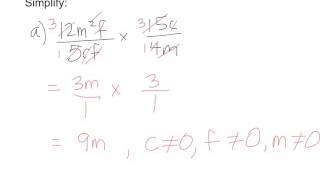 Simplify:
a) 3 12m²f / 1 5cf × 3 15c / 1 4m
= 3m / 1 × 3 / 1
= 9m , c≠0, f≠0, m≠0